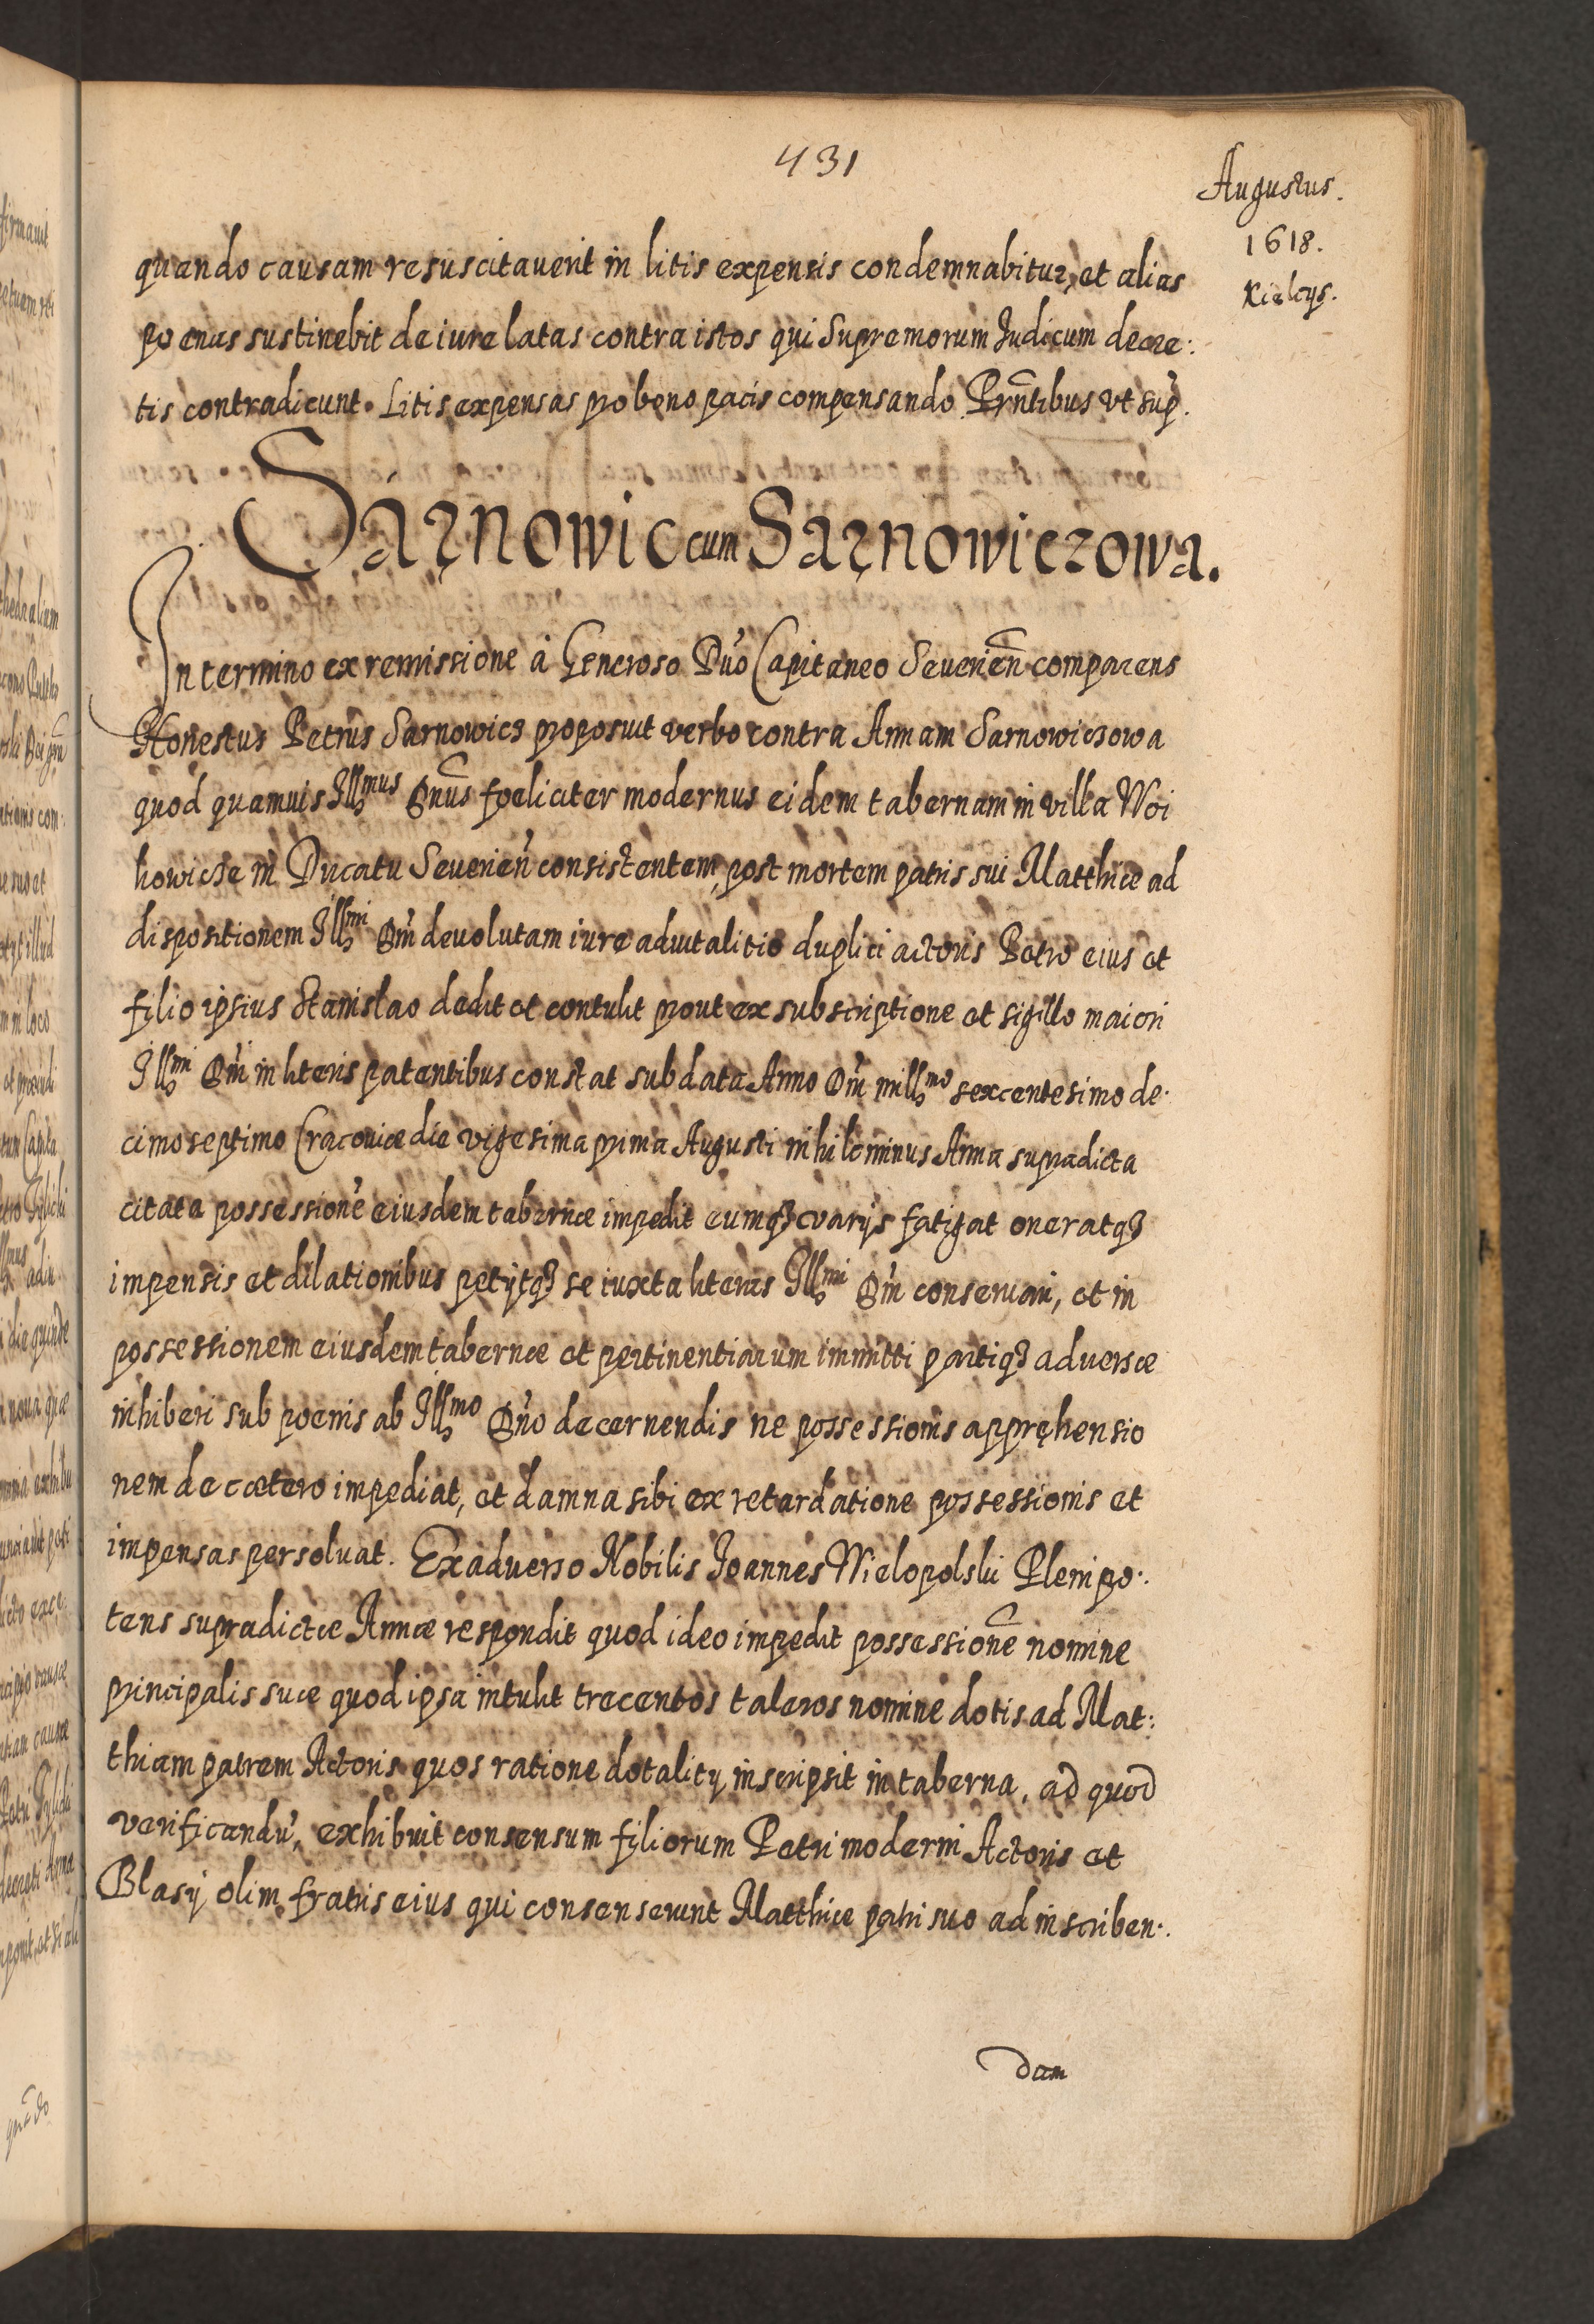 431
Augustus.
1618.
Kielcys.
quando causam resuscitauerit in litis expensis condemnabitur, et alias
poenas sustinebit de iure latas contra istos qui Supremorum Iudicum decre:
tis contradicunt. Litis expensas pro bono pacis compensando. Prn̄tibus vt sup̄.
Sarnowic cum Sarnowiczowa.
In termino ex remissione à Generoso Dn̄o Capitaneo Seuerien̄ comparens
Honestus Petrus Sarnowicz proposuit verbo contra Annam Sarnowiczowa
quod quamuis Illmus Dn̄us foeliciter modernus eidem tabernam in villa Woi
kowicze in Ducatu Seuerien̄ consistentem, post mortem patris sui Matthiæ ad
dispositionem Illmi Dn̄i deuolutam iure aduitalitio duplici actoris Petro eius et
filio ipsius Stanislao dedit et contulit prout ex subscriptione et sigillo maiori
Illmi Dn̄i in literis patentibus constat sub data Anno Dn̄i millmo sexcentesimo de:
cimo septimo Cracouiæ die vigesima prima Augusti nihilominus Anna supradicta
citata possessionē eiusdem tabernæ impedit eumqȝ varijs fatigat oneratqȝ
impensis et dilationibus petijtqȝ se iuxta literas Illmi Dn̄i conseruari, et in
possessionem eiusdem tabernæ et pertinentiarum immitti partiqȝ aduersæ
inhiberi sub poenis ab Illmo Dn̄o decernendis ne possessionis appręhensio
nem de cætero impediat, et damna sibi ex retardatione possessionis et
impensas persoluat. Ex aduerso Nobilis Ioannes Wielopolski Plenipo:
tens supradictæ Annæ respondit quod ideo impedit possessionē nomine
principalis suæ quod ipsa intulit trecentos taleros nomine dotis ad Mat:
thiam patrem Actoris quos ratione dotalitij inscripsit in taberna, ad quod
verificandū, exhibuit consensum filiorum Petri moderni Actoris et
Blasij olim fratris eius qui consenserunt Matthiæ patri suo ad inscriben:
dam